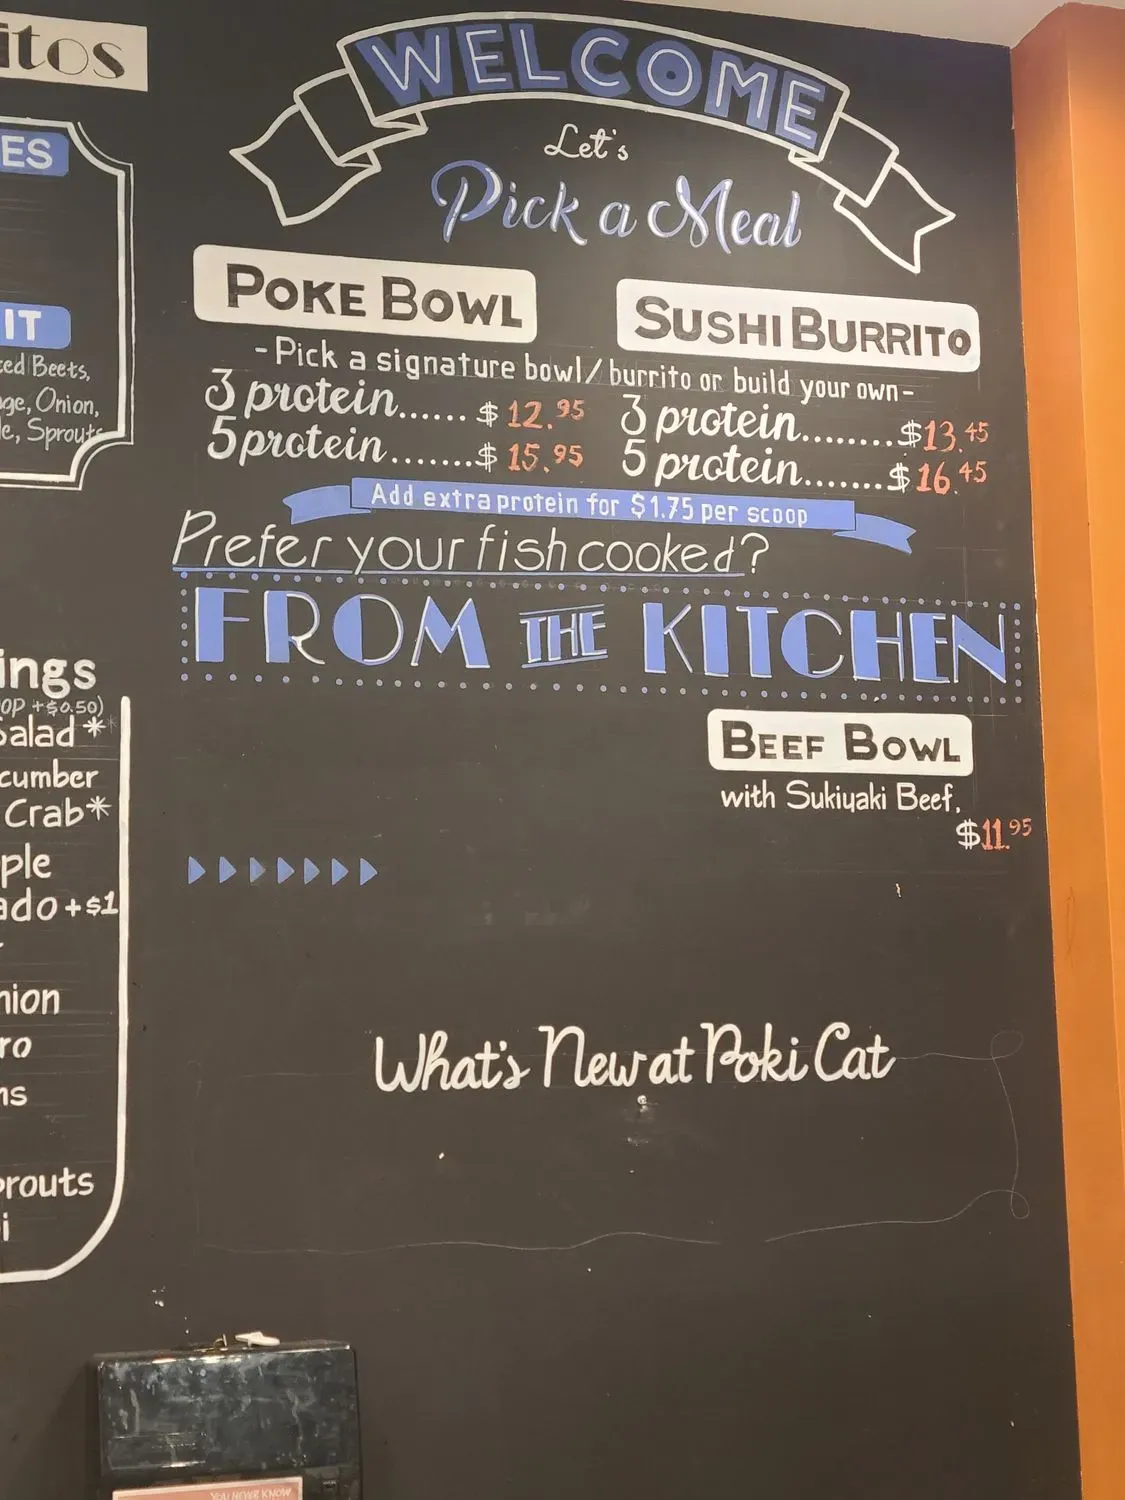 WELCOME
Let's
Pick a Meal
POKE BOWL
SUSHI BURRITO
-Pick a signature bowl/burrito or build your own-
3 protein...... $12.95
5 protein.......$15.95
3 protein........$13.45
5 protein.......$16.45
Add extra protein for $1.75 per scoop
Prefer your fish cooked?
FROM THE KITCHEN
BEEF BOWL
with Sukiyaki Beef,
$11.95
What's New at Poki Cat
itos
ES
IT
ed Beets,
ge, Onion,
e, Sprouts
ings
OP +$0.50)
Salad*
cumber
Crab*
ple
ado +$1
nion
ro
ns
prouts
i
YOU NEVER KNOW